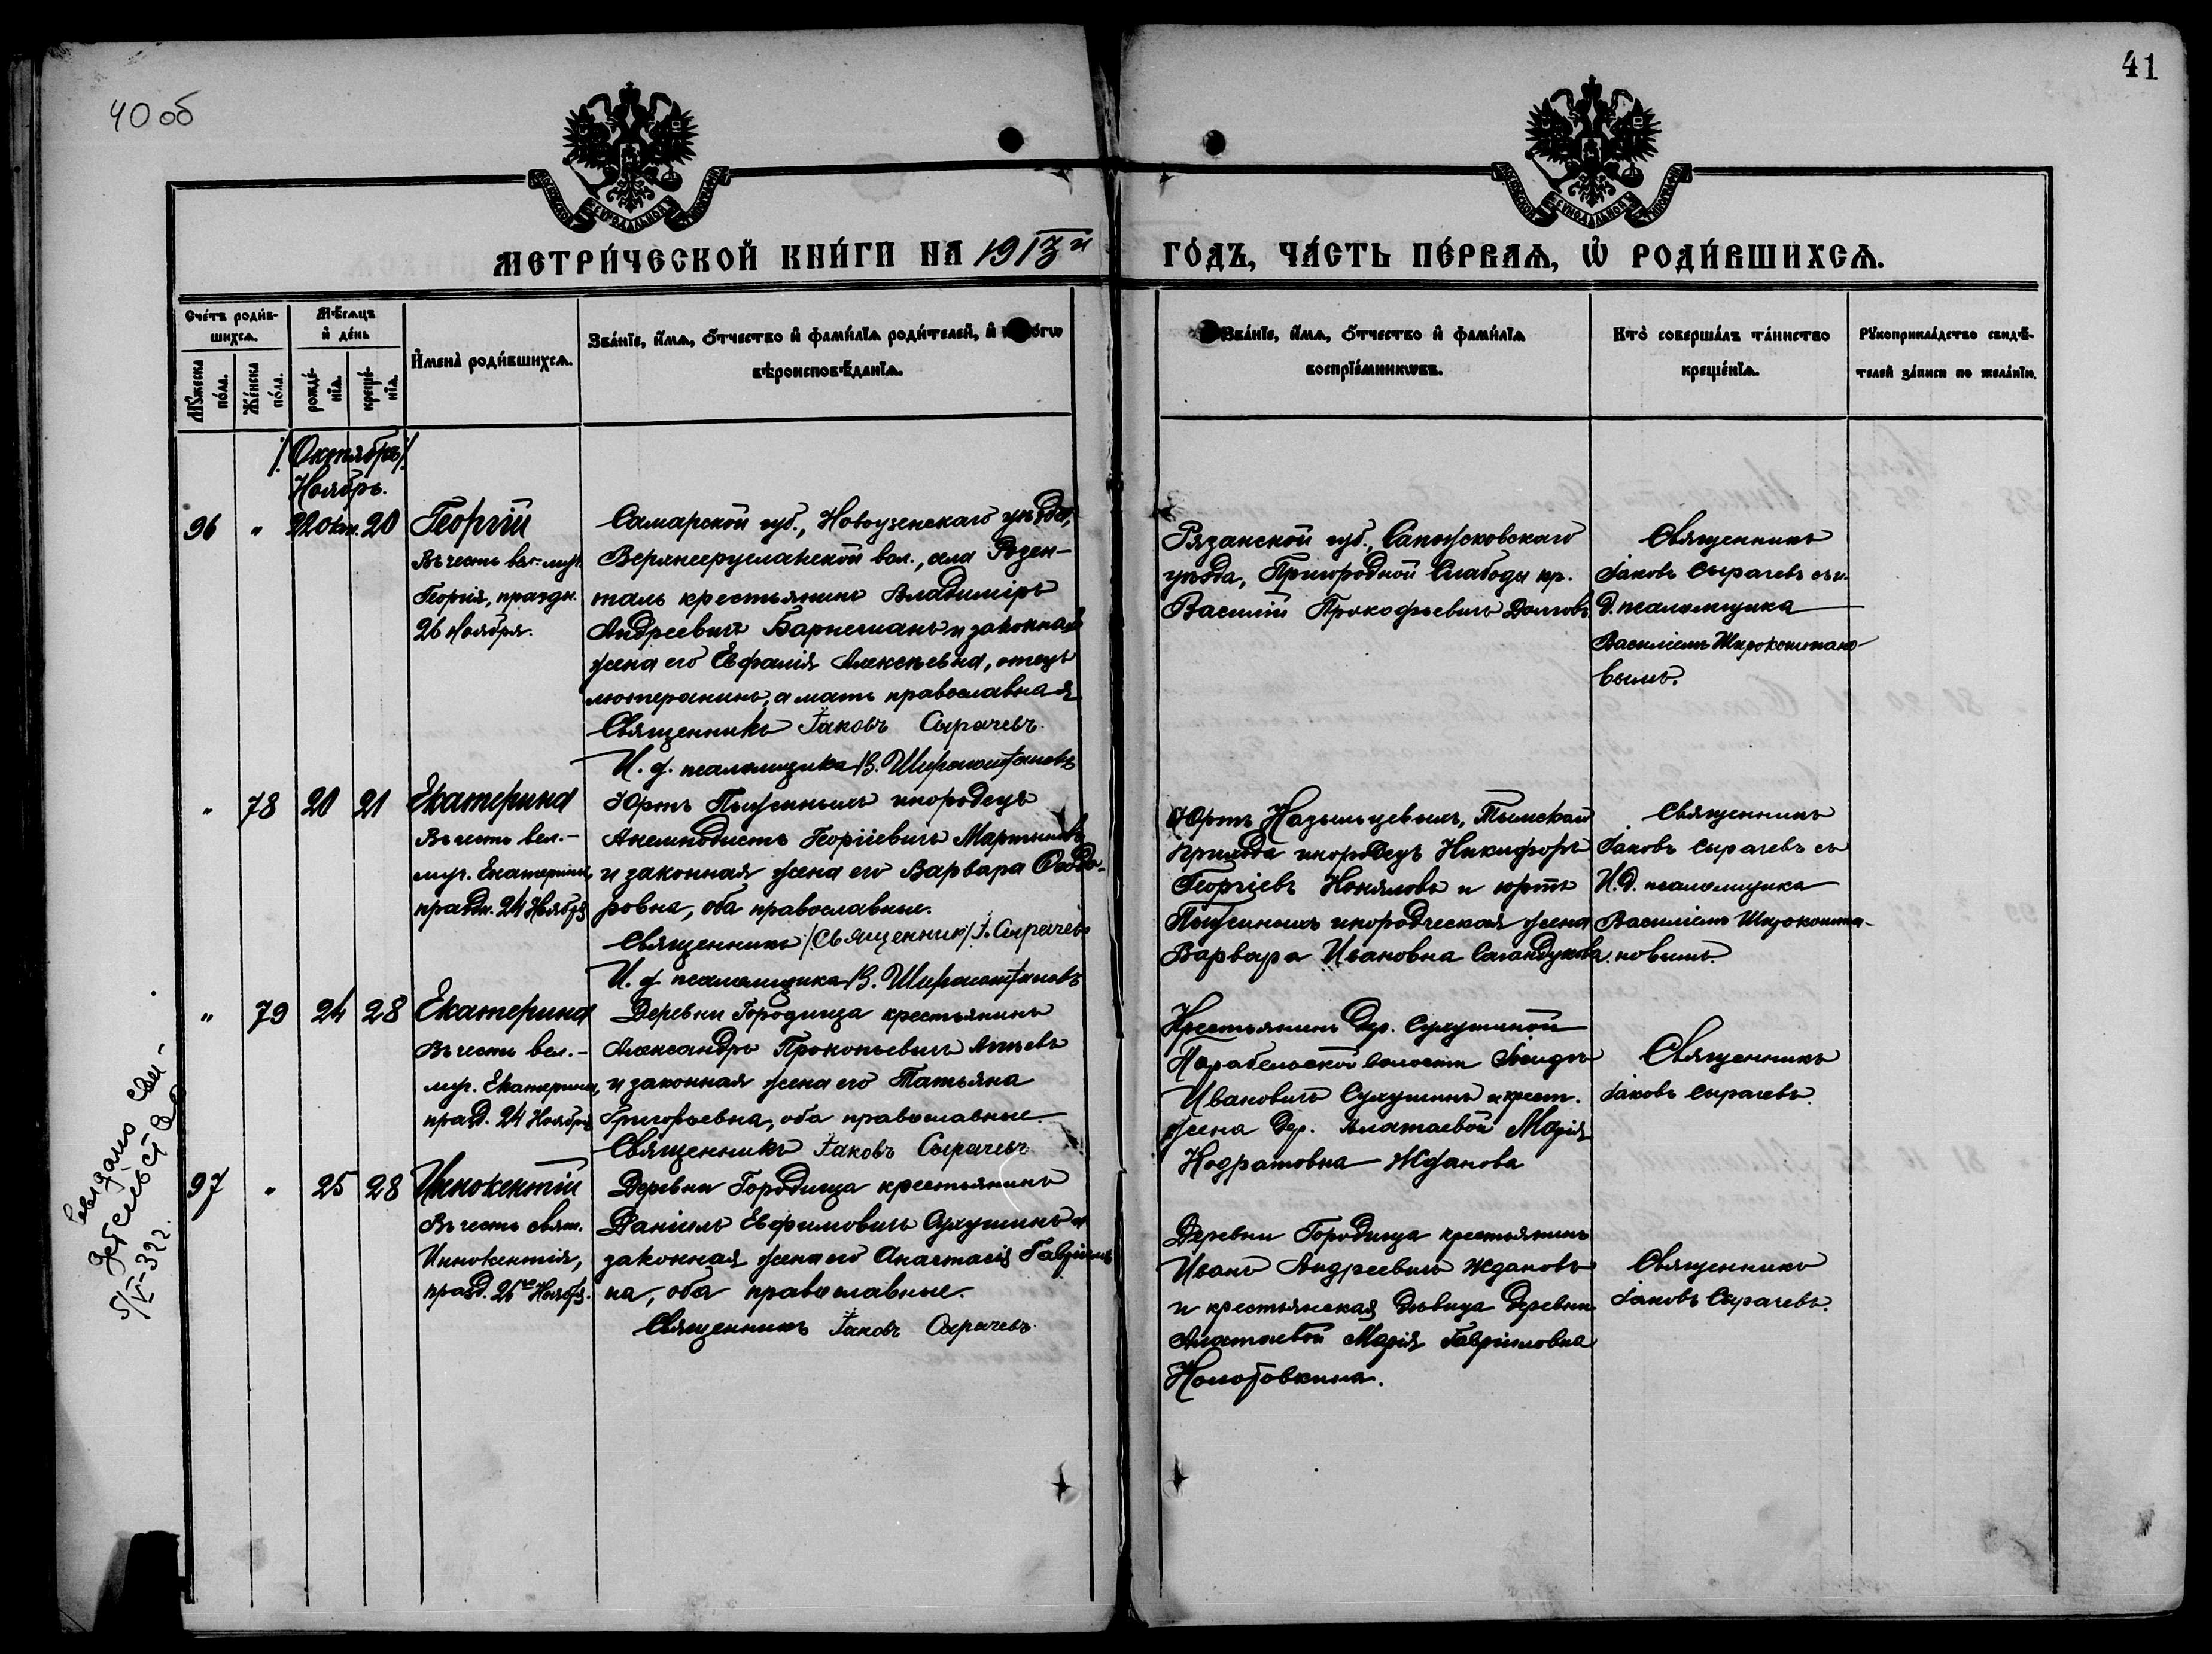 40 об
41
МЕТРИ́ЧЕСКОЙ КНИ́ГИ НА 1913й ГО́ДЪ, ЧА́СТЬ ПЕ́РВАЯ, Ѡ РОДИ́ВШИХСЯ.
Сче́тъ роди́в-
шихся.
Мѣ́сяцъ
и́ де́нь
Мꙋ́жеска
по́ла.
Же́нска
по́ла.
рожде́-
нїя.
креще́-
нїя.
И҆мена̀ роди́вшихся.
Зва́нїе, и҆́мя, о҆́тчество и҆ фами́лїя роди́телей, и҆
вѣроисповѣ́данїя.
Зва́нїе, и҆́мя, о҆́тчество и҆ фами́лїя
воспрїе́мникѡвъ.
Кто̀ соверша́лъ та́инство
креще́нїя.
Рꙋкоприкла́дство свидѣ́-
телей за́писи по жела́нїю.
/Октябрь/
Ноябрь.
96 " 22 Окт. 20 Георгій
Въ честь вел.-муч.
Георгія, праздн.
26 Ноября.
Самарской губ., Новоузенскаго уѣзда,
Верхнееруслаиской вол., села Розен-
таль крестьянинъ Владиміръ
Андреевичъ и законная
жена его Евфалія Алексѣевна, отецъ
лютеранинъ, а мать православная
Священникъ Іаковъ Сырачевъ.
И. д. псаломщика В. Широкоштановъ
Рязанской губ., Сапожковскаго
уѣзда, Пригородной Слабоды кр.
Василій Прокофьевичъ Долговъ.
Священникъ
Іаковъ Сырачевъ съ и.
д. псаломщика
Василіемъ Широкоштано-
вымъ.
" 78 20 21 Екатерина
Въ честь вел.-
муч. Екатерины,
праздн. 24 Ноября
Юртъ Пыжиныхъ инородецъ
Анемподистъ Георгіевичъ Мартыновъ
и законная жена его Варвара Ѳеодо-
ровна, оба православные.
Священникъ /Священник/ І. Сырачевъ
И. д. псаломщика В. Широкоштановъ
Юртъ Назыльцевыхъ, Тымскаго
прихода инородецъ Никифоръ
Георгіевъ и юртъ
Пыжиныхъ инородческая жена
Варвара Ивановна Сагандукова.
Священникъ
Іаковъ Сырачевъ съ
И. д. псаломщика
Василіемъ Широкошта-
новымъ.
" 79 24 28 Екатерина
Въ честь вел.-
муч. Екатерины,
празд. 24 Ноября
Деревни Городища крестьянинъ
Александръ Прокопьевичъ
и законная жена его Татьяна
Григорьевна, оба православные.
Священникъ Іаковъ Сырачевъ
Крестьянинъ дер. Сухушиной
Парабельской волости
Ивановичъ Сухушинъ и крест.
жена дер. Алатаевой Марія
Кодратовна Жданова
Священникъ
Іаковъ Сырачевъ.
97 " 25 28 Иннокентій
Въ честь свят.
Иннокентія,
празд. 26го Ноября.
Деревни Городища крестьянинъ
Даніилъ Евфимовичъ Сухушинъ и
законная жена его Анастасія Гавріилов-
на, оба православные.
Священникъ Іаковъ Сырачевъ.
Деревни Городища крестьянинъ
Иванъ Андреевичъ Ждановъ
и крестьянская дѣвица деревни
Алатаевой Марія Гавріиловна
Священникъ
Іаковъ Сырачевъ.